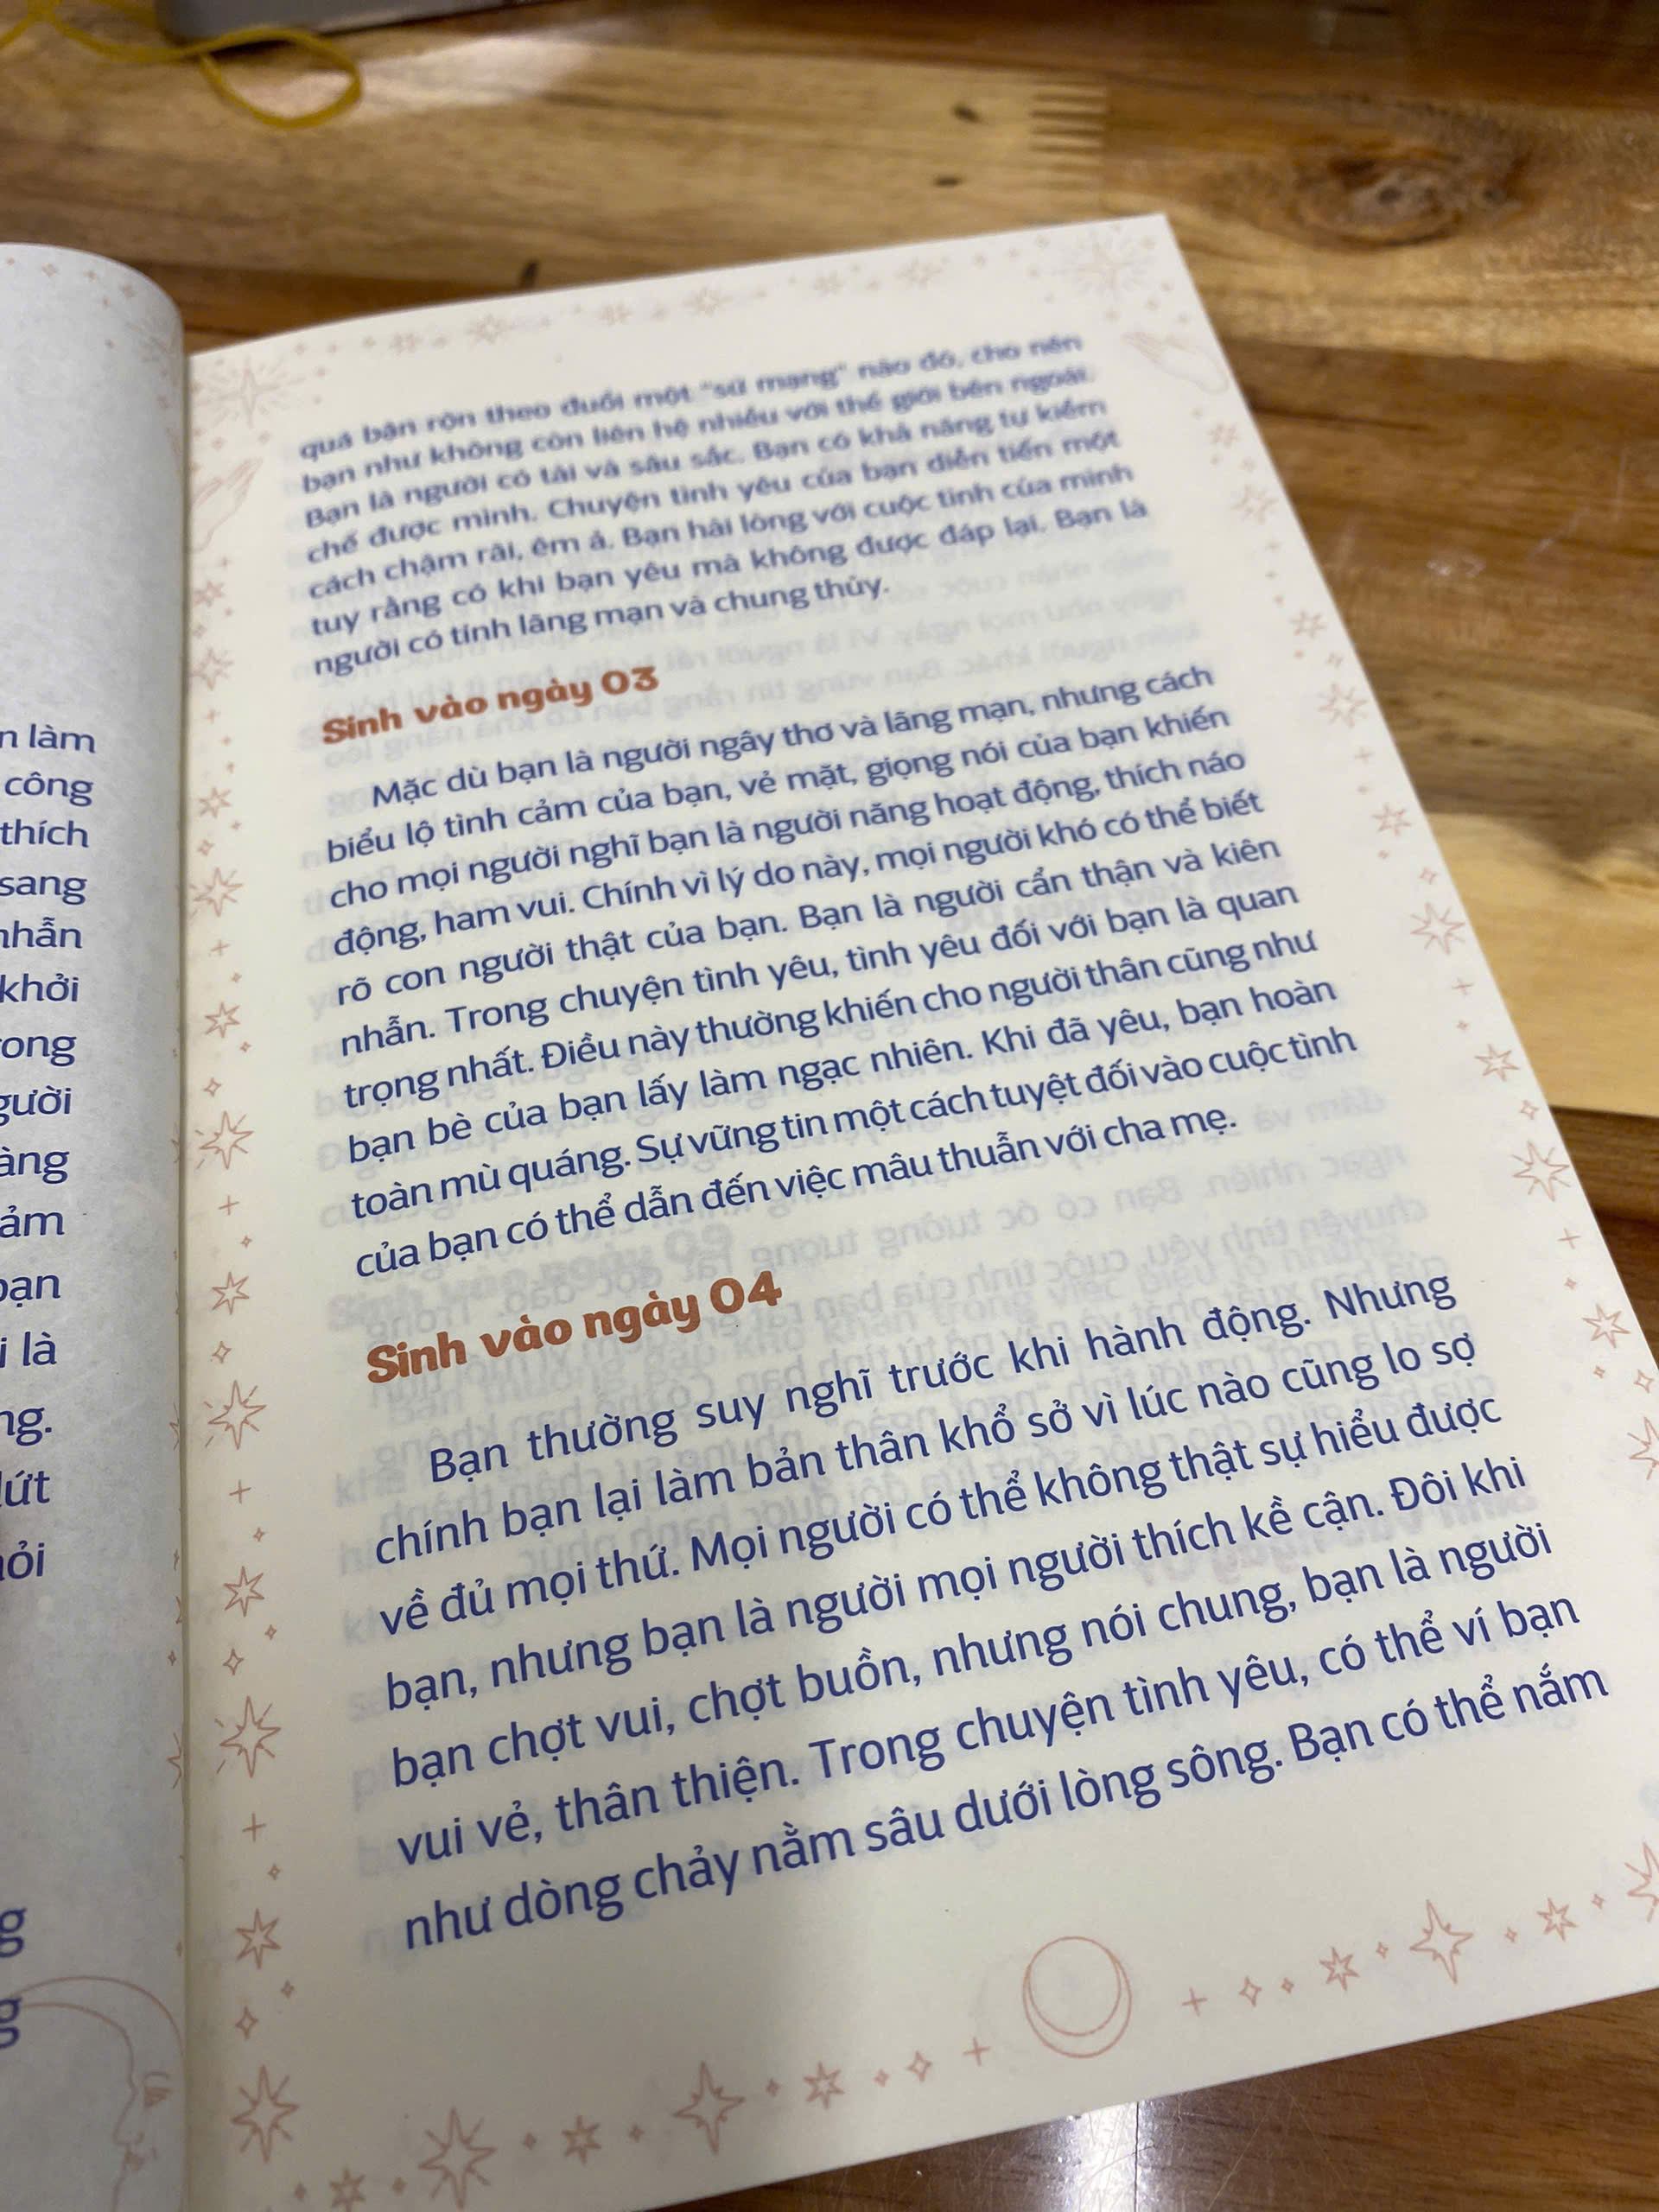 n làm
công
thích
sang
nhẫn
khởi
rong
gười
àng
ảm
bạn
i là
ng.
lứt
nỏi
g
g
quá bận rộn theo đuổi một "sứ mạng" nào đó, cho nên
bạn như không còn liên hệ nhiều với thế giới bên ngoài.
Bạn là người có tài và sâu sắc. Bạn có khả năng tự kiềm
chế được mình. Chuyện tình yêu của bạn diễn tiến một
cách chậm rãi, êm ả. Bạn hài lòng với cuộc tình của mình
tuy rằng có khi bạn yêu mà không được đáp lại. Bạn là
người có tính lãng mạn và chung thủy.
Sinh vào ngày 03
Mặc dù bạn là người ngây thơ và lãng mạn, nhưng cách
biểu lộ tình cảm của bạn, vẻ mặt, giọng nói của bạn khiến
cho mọi người nghĩ bạn là người năng hoạt động, thích náo
động, ham vui. Chính vì lý do này, mọi người khó có thể biết
rõ con người thật của bạn. Bạn là người cẩn thận và kiên
nhẫn. Trong chuyện tình yêu, tình yêu đối với bạn là quan
trọng nhất. Điều này thường khiến cho người thân cũng như
bạn bè của bạn lấy làm ngạc nhiên. Khi đã yêu, bạn hoàn
toàn mù quáng. Sự vững tin một cách tuyệt đối vào cuộc tình
của bạn có thể dẫn đến việc mâu thuẫn với cha mẹ.
Sinh vào ngày 04
Bạn thường suy nghĩ trước khi hành động. Nhưng
chính bạn lại làm bản thân khổ sở vì lúc nào cũng lo sợ
về đủ mọi thứ. Mọi người có thể không thật sự hiểu được
bạn, nhưng bạn là người mọi người thích kề cận. Đôi khi
bạn chợt vui, chợt buồn, nhưng nói chung, bạn là người
vui vẻ, thân thiện. Trong chuyện tình yêu, có thể ví bạn
như dòng chảy nằm sâu dưới lòng sông. Bạn có thể nắm